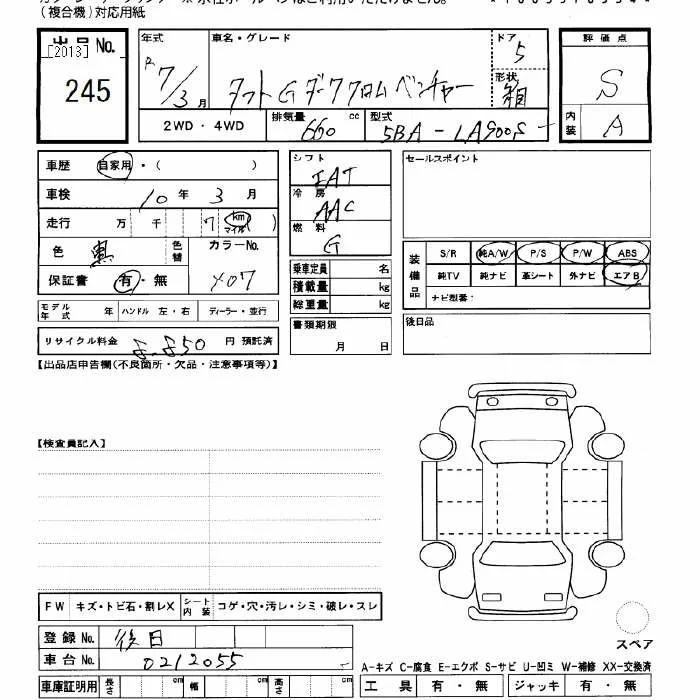 (複合機)対応用紙
出品No.
[2013]
245
年式
R7/3月
車名・グレード
タフト G ダーククロムベンチャー
ドア
5
形状
箱
評価点
S
内装
A
2WD・4WD
排気量
660 cc
型式
5BA-LA900S
車歴
自家用・( )
車検
10年3月
走行
万 千 7 km マイル ( )
色
黒
色替
カラーNo.
X07
保証書
有・無
モデル年式
年
ハンドル 左・右
ディーラー・並行
リサイクル料金
8.850 円 預託済
シフト
IAT
冷房
AAC
燃料
G
乗車定員 名
積載量 kg
総重量 kg
書類期限
月 日
セールスポイント
装備品
S/R 純A/W P/S P/W ABS
純TV 純ナビ 革シート 外ナビ エアB
ナビ型番:
後日品
【出品店申告欄(不良箇所・欠品・注意事項等)】
【検査員記入】
FW キズ・トビ石・割レX
シート内装 コゲ・穴・汚レ・シミ・破レ・スレ
登録No. 後日
車台No. 0212055
車庫証明用 長さ cm 幅 cm 高さ cm
スペア
A-キズ C-腐食 E-エクボ S-サビ U-凹ミ W-補修 XX-交換済
工具 有・無 ジャッキ 有・無